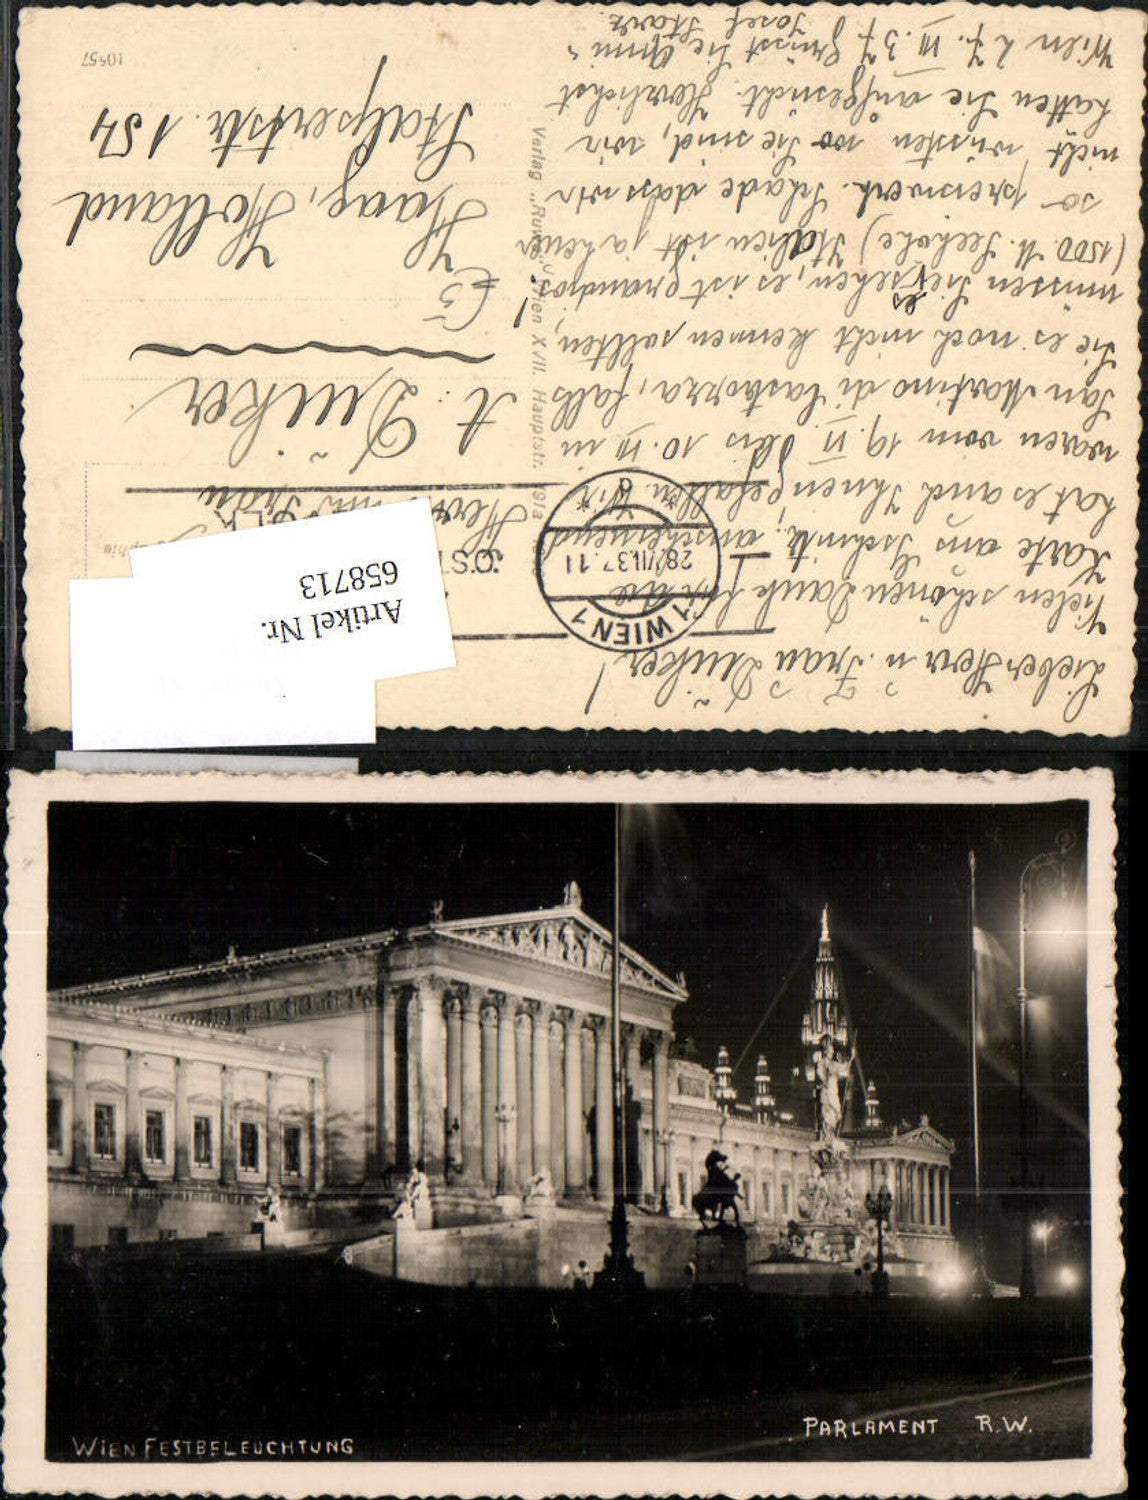 Lieber Herr u. Frau Düiker!
Vielen schönen Dank für die
Karte aus Ischnitz, anscheinend
hat es auch Ihnen gefallen. Wir
waren vom 19. VI bis 10. VII in
San Martino di Castrozza, falls
Sie es noch nicht kennen sollten,
müssen Sie es sehen, es ist grandios!
(1500 M. Seehöhe) Italien ist ja heuer
so preiswert. Schade dass wir
nicht wussten wo Sie sind, wir
hätten Sie aufgesucht. Herzlichst
grüsst Sie
Wien 27. VII. 37.
Josef
1 WIEN 1
28.VII.37.11
* a *
Verlag „ Wien XVII. Hauptstr. 191a
Herrn u. Frau
A. Düiker
Haag, Holland
Stalpertstr. 154
10457
Artikel Nr.
658713
WIEN FESTBELEUCHTUNG
PARLAMENT R.W.